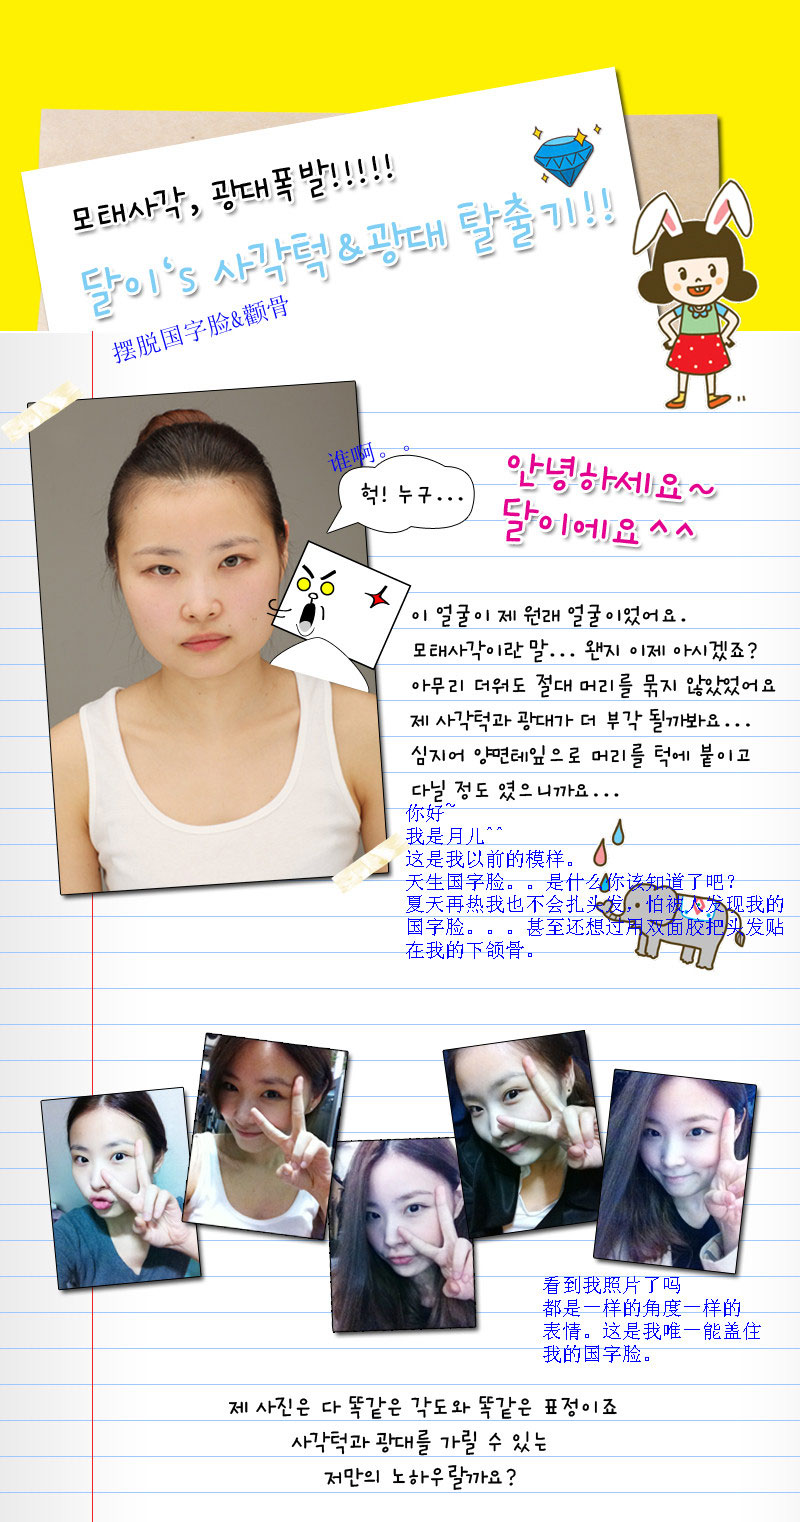 모태사각, 광대폭발!!!!!
달이's 사각턱&광대 탈출기!!
摆脱国字脸&颧骨
谁啊。。
헉! 누구...
안녕하세요~
달이에요^^
이 얼굴이 제 원래 얼굴이었어요.
모태사각이란 말... 왠지 이제 아시겠죠?
아무리 더워도 절대 머리를 묶지 않았었어요
제 사각턱과 광대가 더 부각 될까봐요...
심지어 양면테잎으로 머리를 턱에 붙이고
다닐 정도 였으니까요...
你好~
我是月儿^^
这是我以前的模样。
天生国字脸。。是什么你该知道了吧?
夏天再热我也不会扎头发，怕被人发现我的
国字脸。。。甚至还想过用双面胶把头发贴
在我的下颌骨。
看到我照片了吗
都是一样的角度一样的
表情。这是我唯一能盖住
我的国字脸。
제 사진은 다 똑같은 각도와 똑같은 표정이죠
사각턱과 광대를 가릴 수 있는
저만의 노하우랄까요?